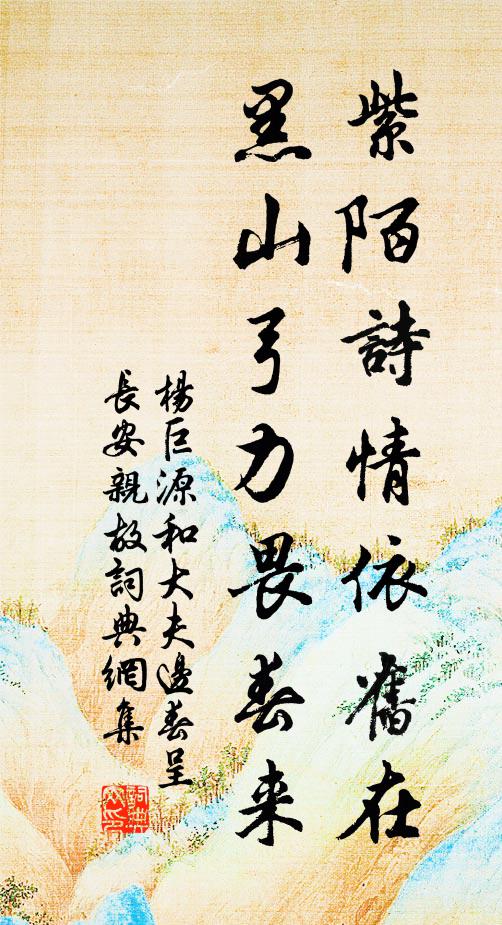 紫陌詩情依舊在
黑山弓力畏春来
楊巨源和大夫邊春呈
長安親故詞典網集